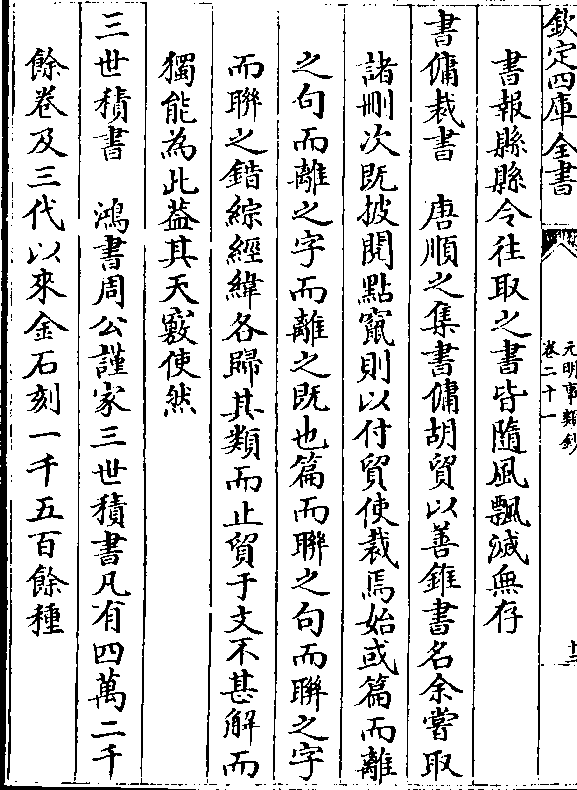 欽定四庫全書
元明事類鈔
卷二十一
十三
書報縣縣令往取之書皆隨風飄滅無存
書傭裁書　唐順之集書傭胡貿以善錐書名余嘗取
諸刪次既披閱點竄則以付貿使裁焉始或篇而離
之句而離之字而離之既也篇而聯之句而聯之字
而聯之錯綜經緯各歸其類而止貿于文不甚解而
獨能為此葢其天竅使然
三世積書　鴻書周公謹家三世積書凡有四萬二千
餘卷及三代以來金石刻一千五百餘種